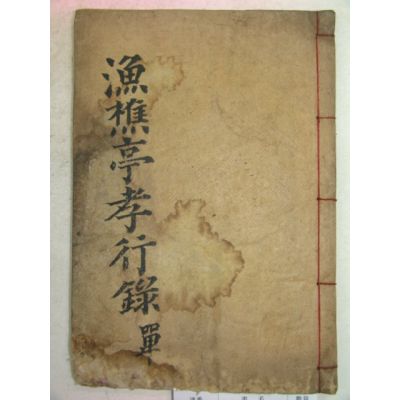 漁樵亭孝行錄 單